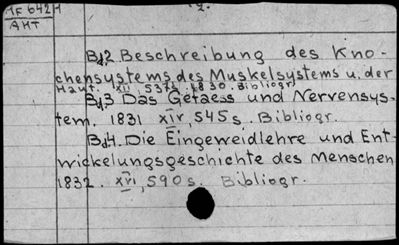 MF 642 H
- 2. -
AHT
Bd2. Beschreibung des Kno-
chensystems, des Muskelsystems u. der
Haut. XII, 537s. 1830. Bibliogr.
Bd3 Das Getaess und Nervensys-
tem. 1831 XIV, 545 s. Bibliogr.
Bd4. Die Eingeweidlehre und Ent-
wickelungsgeschichte des Menschen
1832. XVI, 590 s. Bibliogr.